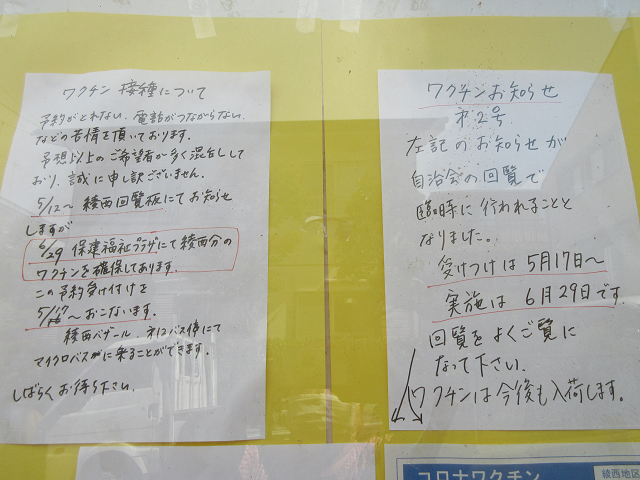 ワクチン 接種について
予約がとれない、電話がつながらない
などの苦情を頂いております。
予想以上のご希望者が多く混合して
おり、誠に申し訳ございません。
5/12〜 綾西回覧板にてお知らせ
しますが
6/29 保建福祉プラザにて綾西分の
ワクチンを確保してあります。
この予約受け付けを
5/17〜おこないます。
綾西バザール バス停にて
マイクロバスがに乗ることができます。
しばらくお待ち下さい。
ワクチンお知らせ
第2号
左記のお知らせが
自治会の回覧で
臨時に行われることと
なりました。
受けつけは5月17日〜
実施は6月29日です
回覧をよくご覧に
なって下さい。
ワクチンは今後も入荷します。
コロナワクチン
綾西地区